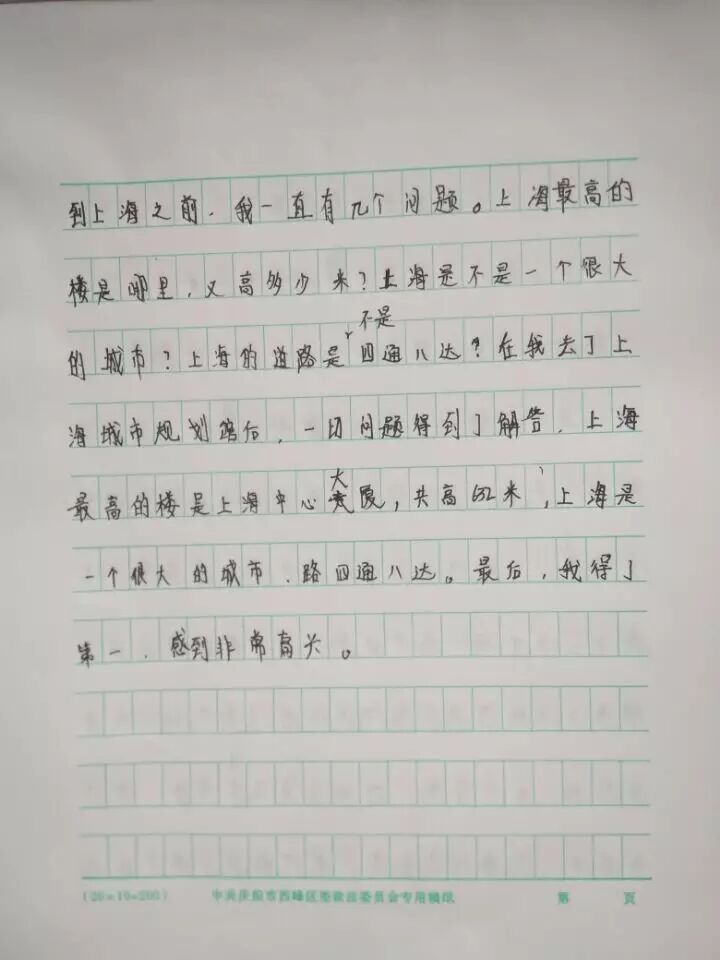 到上海之前，我一直有几个问题。上海最高的
楼是哪里，又高多少米？上海是不是一个很大
的城市？上海的道路是不是四通八达？在我去了上
海城市规划馆后，一切问题得到了解答，上海
最高的楼是上海中心大厦，共高632米，上海是
一个很大的城市、路四通八达。最后，我得了
第一，感到非常高兴。
(20×10=200) 中共庆阳市西峰区委政法委员会专用稿纸 第 页